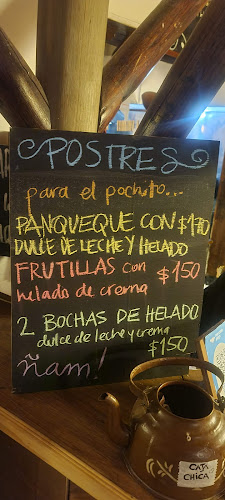 POSTRES
para el pochito...
PANQUEQUE CON $170
DULCE DE LECHE Y HELADO
FRUTILLAS con $150
helado de crema
2 BOCHAS DE HELADO
dulce de leche y crema
$150
ñam!
CAJA
CHICA